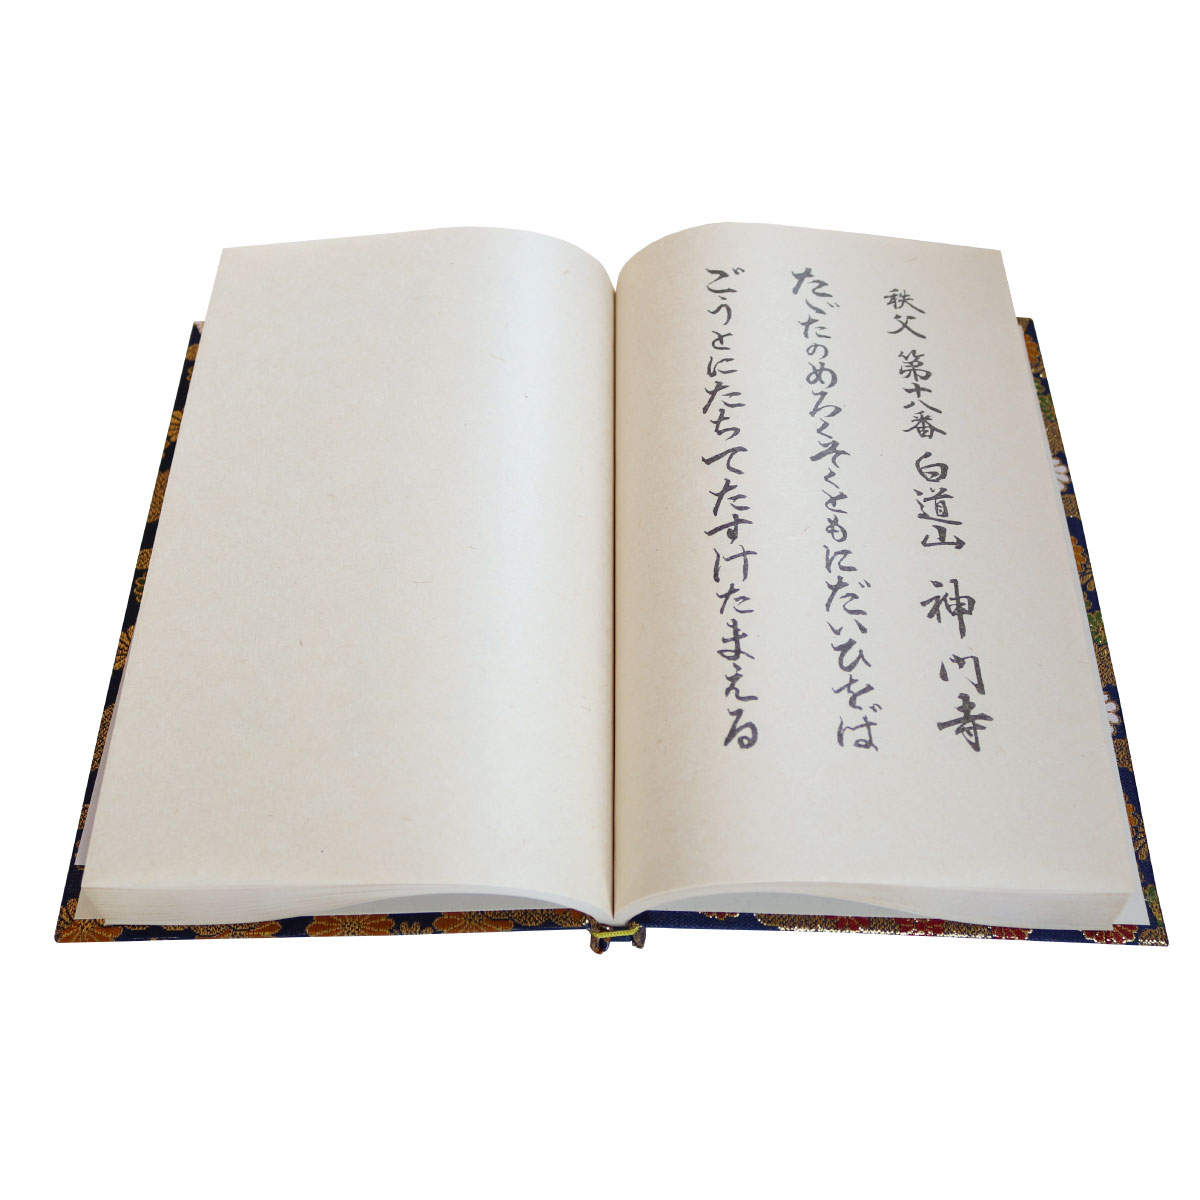 秩父 第十八番 白道山 神門寺
たゞたのめろくそくともにだいひをば
ごうとにたちてたすけたまえる